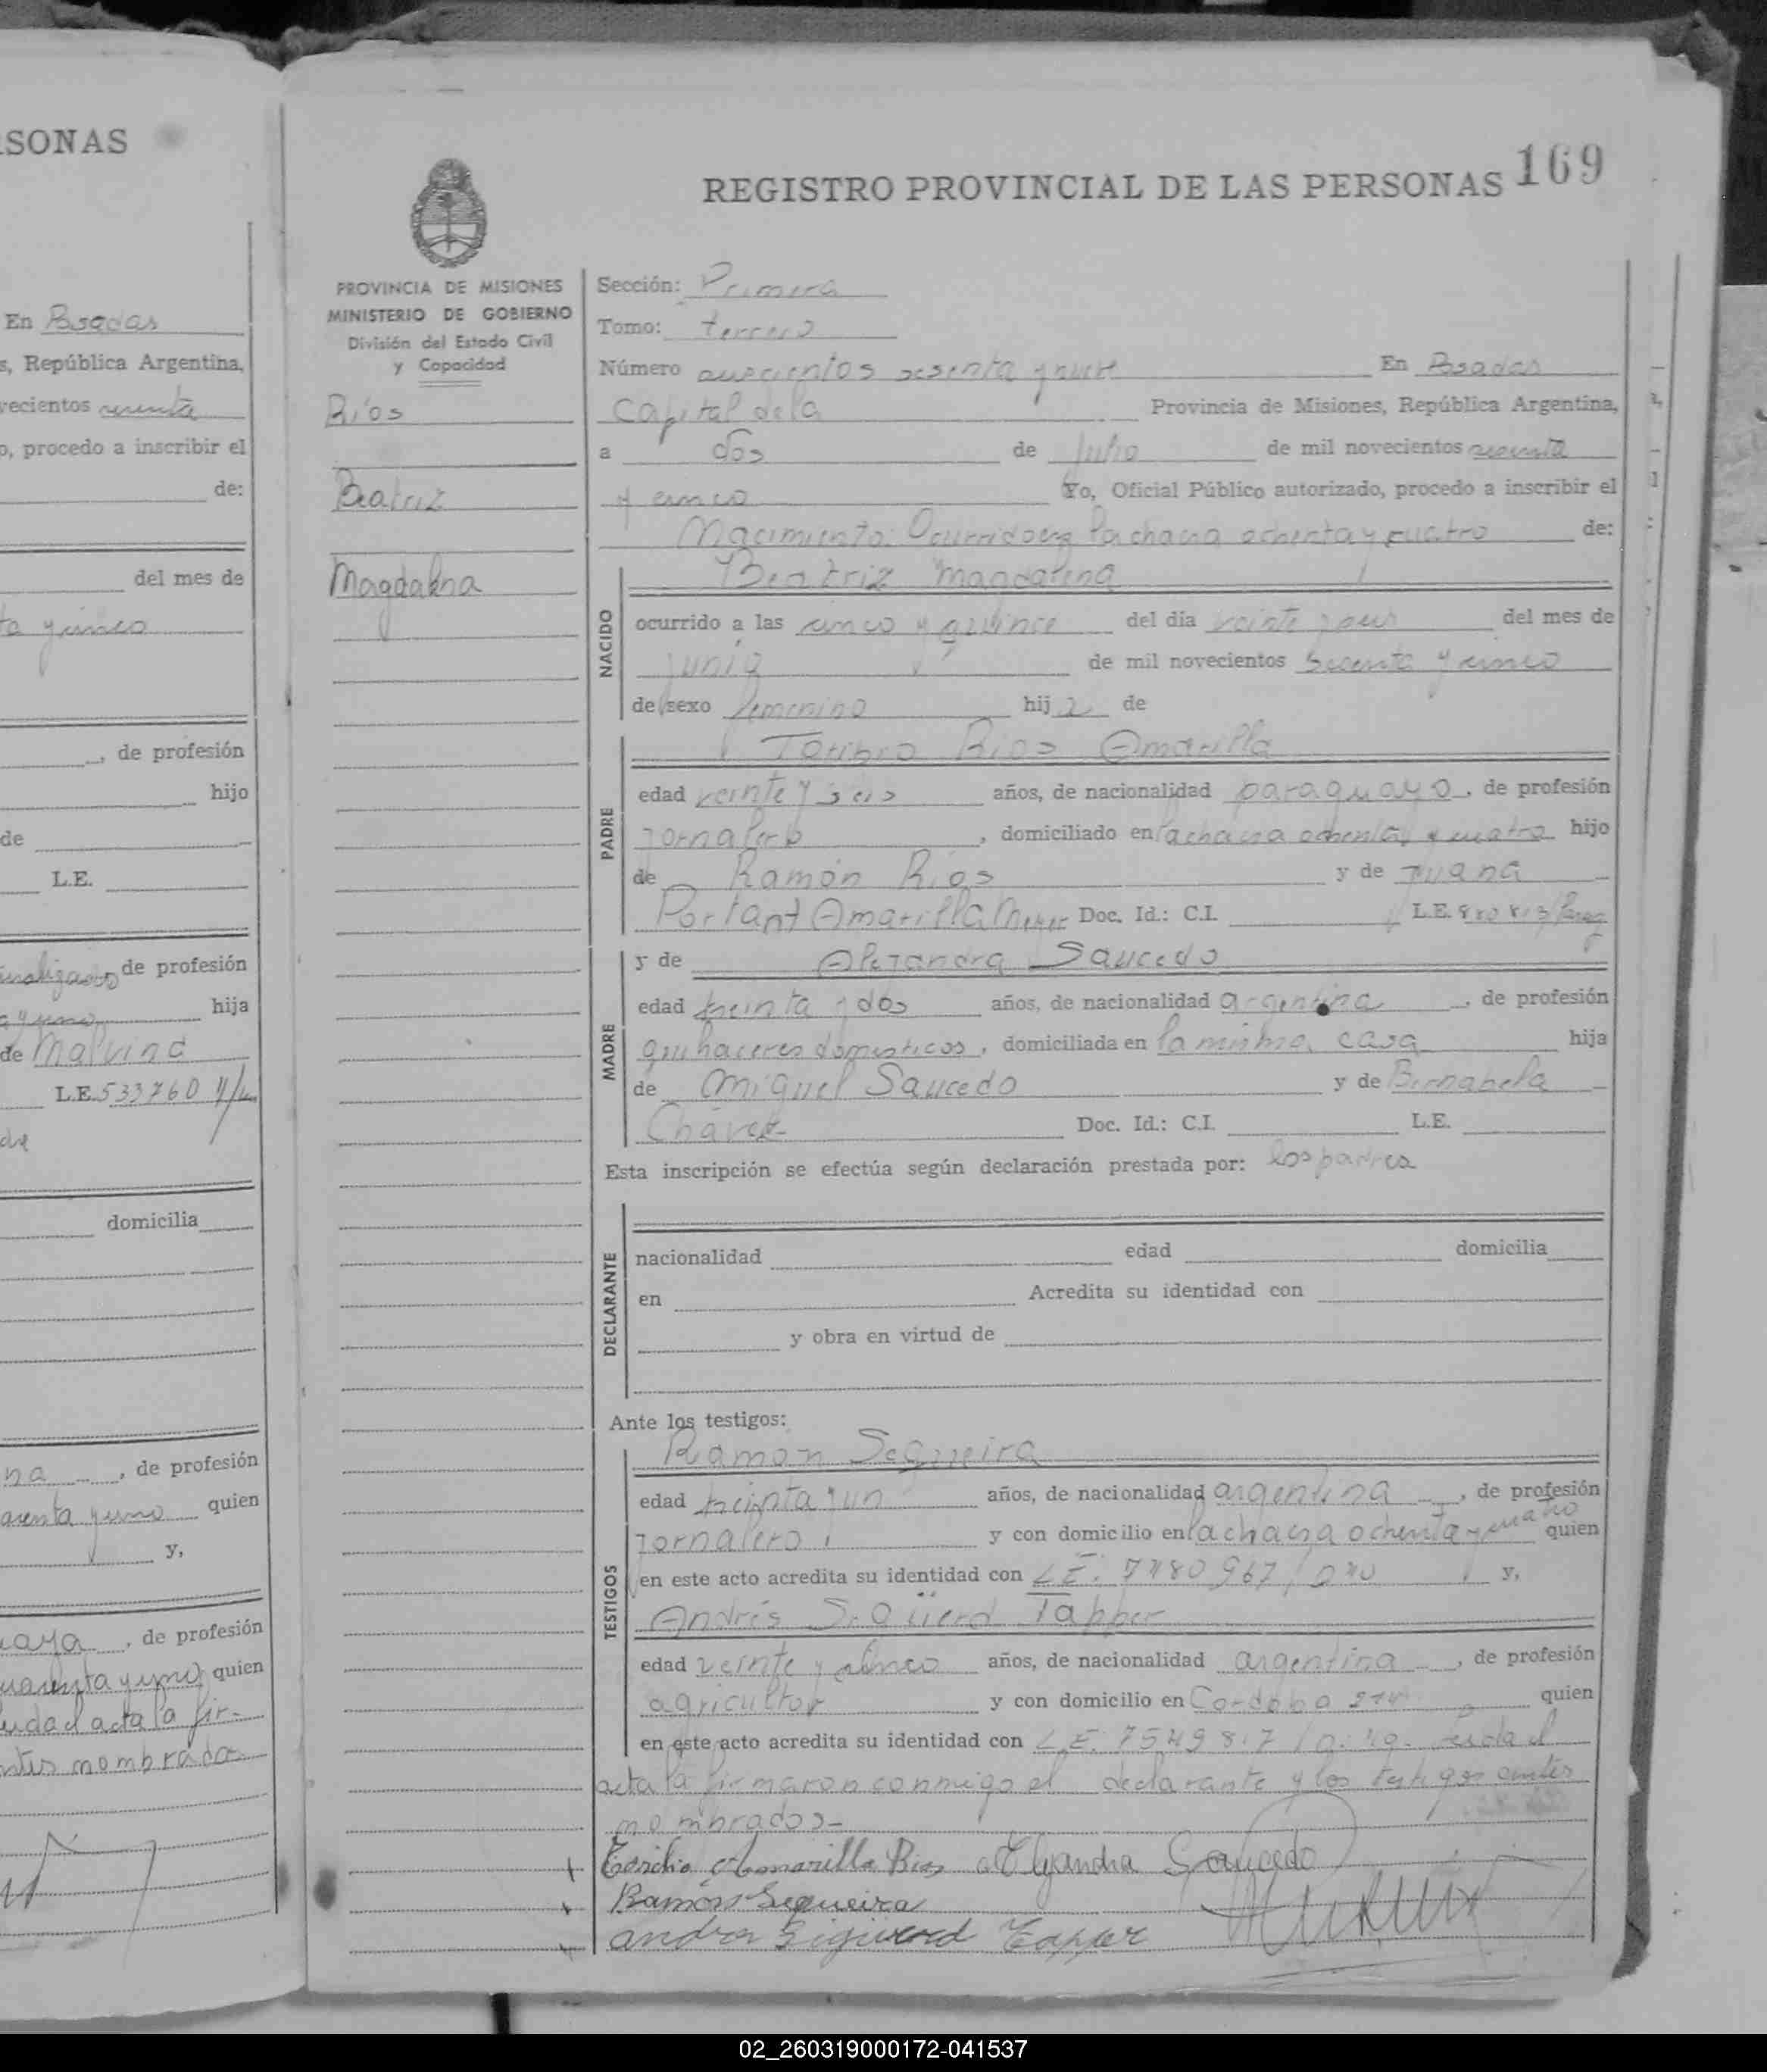 SONAS
En Posadas
s, República Argentina,
vecientos
o, procedo a inscribir el
de:
del mes de
ta y cinco
, de profesión
hijo
de
L.E.
de profesión
hija
y uno
de Malvina
L.E. 533760
de
domicilia
na , de profesión
arenta y uno quien
y,
uaya , de profesión
uarenta y uno quien
acta la fir-
ntes nombrados
REGISTRO PROVINCIAL DE LAS PERSONAS 169
PROVINCIA DE MISIONES
MINISTERIO DE GOBIERNO
División del Estado Civil
y Capacidad
Ríos
Beatriz
Magdalena
Sección: Primera
Tomo: tercero
Número doscientos sesenta y nueve En Posadas
Capital de la Provincia de Misiones, República Argentina,
a dos de Julio de mil novecientos sesenta
y cinco Yo, Oficial Público autorizado, procedo a inscribir el
Nacimiento: Ocurrido en la chacra ochenta y cuatro de:
NACIDO
Beatriz Magdalena
ocurrido a las cinco y quince del día veinte y del mes de
junio de mil novecientos sesenta y cinco
de sexo femenino hija de
PADRE
Toribio Ríos Amarilla
edad veinte y seis años, de nacionalidad paraguayo, de profesión
jornalero, domiciliado en la chacra ochenta y cuatro hijo
de Ramón Ríos y de Juana
Portant Amarilla Doc. Id.: C.I. L.E.
MADRE
y de Alejandra Saucedo
edad treinta y dos años, de nacionalidad argentina, de profesión
quehaceres domésticos, domiciliada en la misma casa hija
de Miguel Saucedo y de Bernabela
Chávez Doc. Id.: C.I. L.E.
Esta inscripción se efectúa según declaración prestada por: los padres
DECLARANTE
nacionalidad edad domicilia
en Acredita su identidad con
y obra en virtud de
Ante los testigos:
TESTIGOS
Ramon Segueira
edad treinta y un años, de nacionalidad argentina, de profesión
jornalero y con domicilio en la chacra ochenta y cuatro quien
en este acto acredita su identidad con L.E: y,
Andrés Sigüierd Tapper
edad veinte y cinco años, de nacionalidad argentina, de profesión
agricultor y con domicilio en Cordoba quien
en este acto acredita su identidad con L.E: leida el
acta la firmaron conmigo el declarante y los testigos antes
nombrados-
Toribio Amarilla Rios Alejandra Saucedo
Ramón Segueira
Andres Sigüierd Tapper
02_260319000172-041537